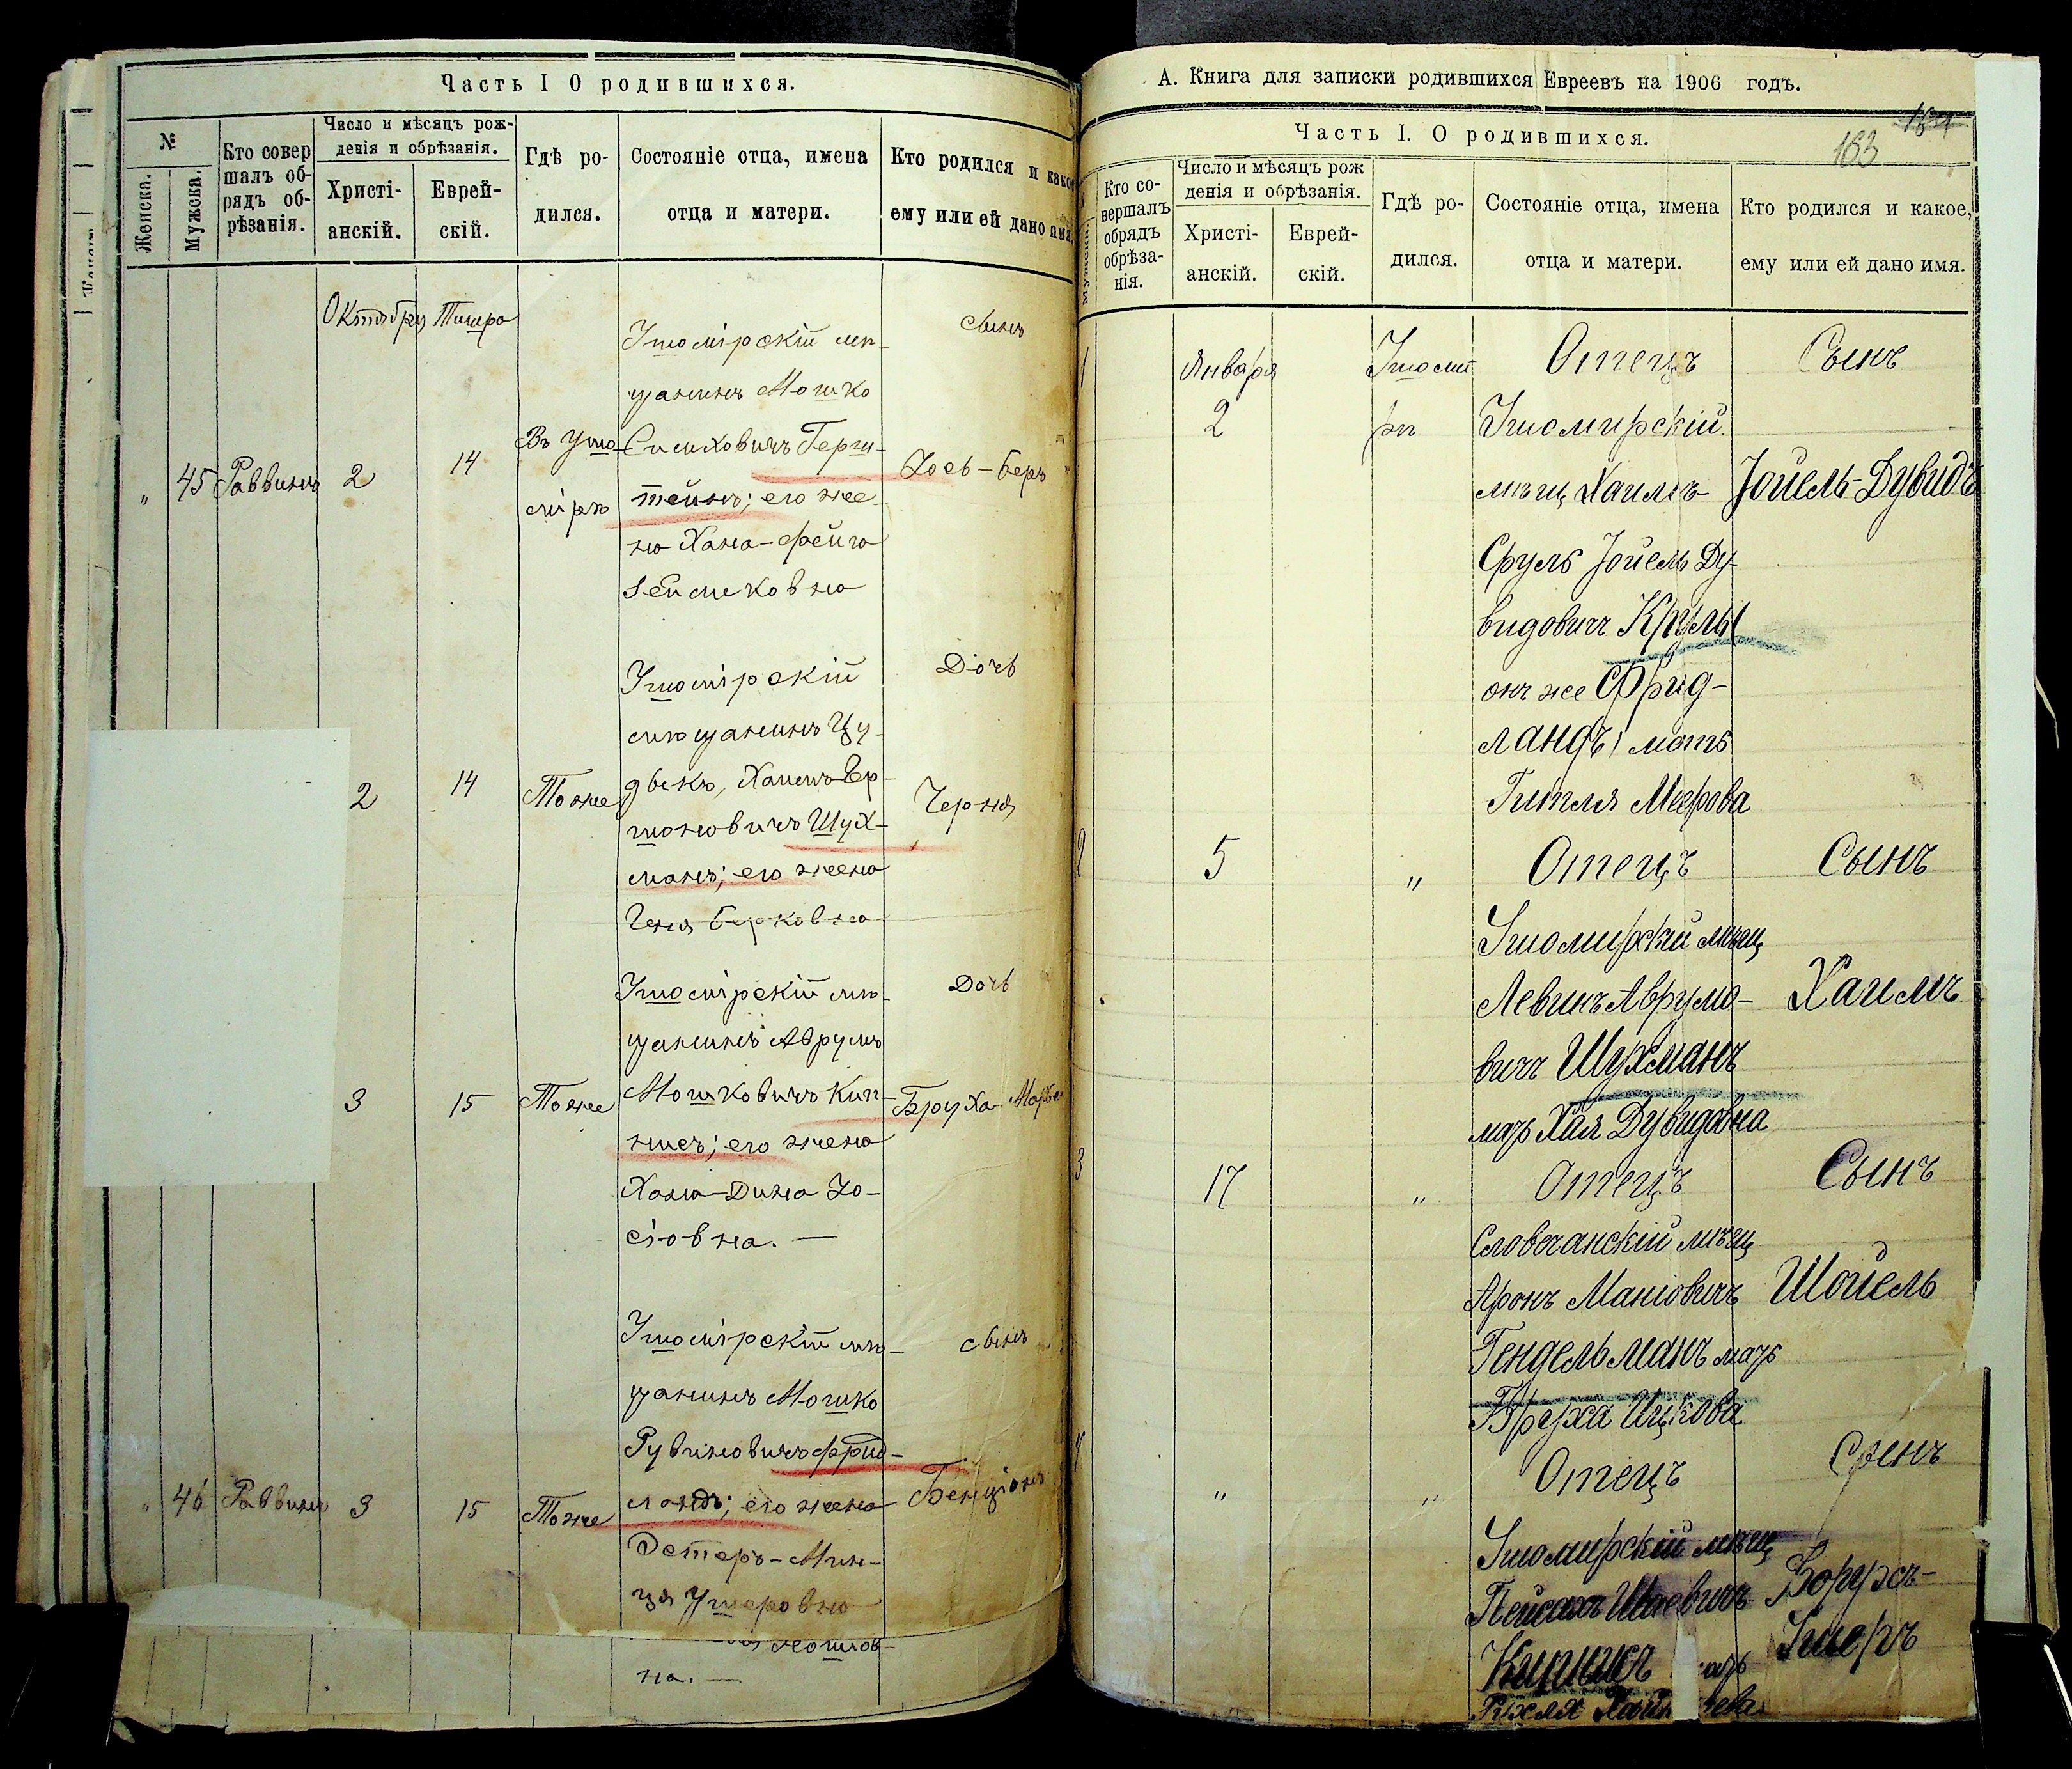 Часть I О родившихся.
№
Женска.
Мужска.
Кто совер
шалъ об-
рядъ об-
рѣзанія.
Число и мѣсяцъ рож-
денія и обрѣзанія.
Христі-
анскій.
Еврей-
скій.
Гдѣ ро-
дился.
Состояніе отца, имена
отца и матери.
Кто родился и какое
ему или ей дано имя.
Октября Тишра
Ушомірскій мѣ-
щанинъ Мошко
Симховичъ Герш-
тейнъ; его же-
на Хана-Фейга
сынъ
" 45 Раввинъ 2 14
Въ Ушо-
мірѣ
Іось-Беръ
Ушомірскій
мѣщанинъ Цу-
дыкъ, Хаимъ Гер-
шоновичъ Шух-
манъ; его жена
Геня Берковна
Дочь
2 14 Тоже
Черня
Ушомірскій мѣ-
щанинъ Аврумъ
Мошковичъ Кип-
нисъ; его жена
Хана-Дина Іо-
сіовна. —
Дочь
3 15 Тоже
Бруха
Ушомірскій мѣ-
щанинъ Мошко
Рувиновичъ Фрид-
ландъ; его жена
Эстеръ-Мин-
ця Ушеровна
сынъ
" 46 Раввинъ 3 15 Тоже
Бенціонъ
на. —
А. Книга для записки родившихся Евреевъ на 1906 годъ.
163
Часть I. О родившихся.
Мужска.
Кто со-
вершалъ
обрядъ
обрѣза-
нія.
Число и мѣсяцъ рож
денія и обрѣзанія.
Христі-
анскій.
Еврей-
скій.
Гдѣ ро-
дился.
Состояніе отца, имена
отца и матери.
Кто родился и какое,
ему или ей дано имя.
1 Января 2
Ушоми
рѣ
Отецъ
Ушомирскій
мѣщ Хаимъ-
Сруль Іойель Ду-
видовичъ Круль
онъ же Фрид-
ландъ, мать
Гитля Меерова
Сынъ
Іойель-Дувидъ
2 5 "
Отецъ
Ушомирскій мѣщ
Левинъ Аврумо-
вичъ Шухманъ
мать Хая Дувидовна
Сынъ
Хаимъ
3 17 "
Отецъ
Словечанскій мѣщ
Аронъ Маніовичъ
Гендельманъ мать
Бруха Ицкова
Сынъ
Шойель
4 " "
Отецъ
Ушомирскій мѣщ
Пейсахъ Шаевичъ
Кипнисъ
Рухля
Сынъ
Борухъ-
Ушеръ